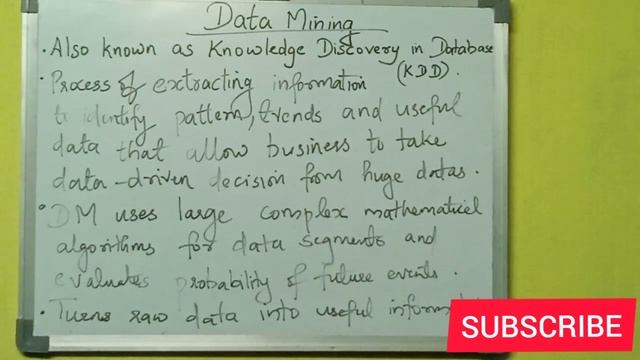 Data Mining
• Also known as Knowledge Discovery in Database
(KDD).
• Process of extracting information
to identify pattern, trends and useful
data that allow business to take
data-driven decision from huge datas.
• DM uses large complex mathematical
algorithms for data segments and
evaluates probability of future events.
• Turns raw data into useful
SUBSCRIBE